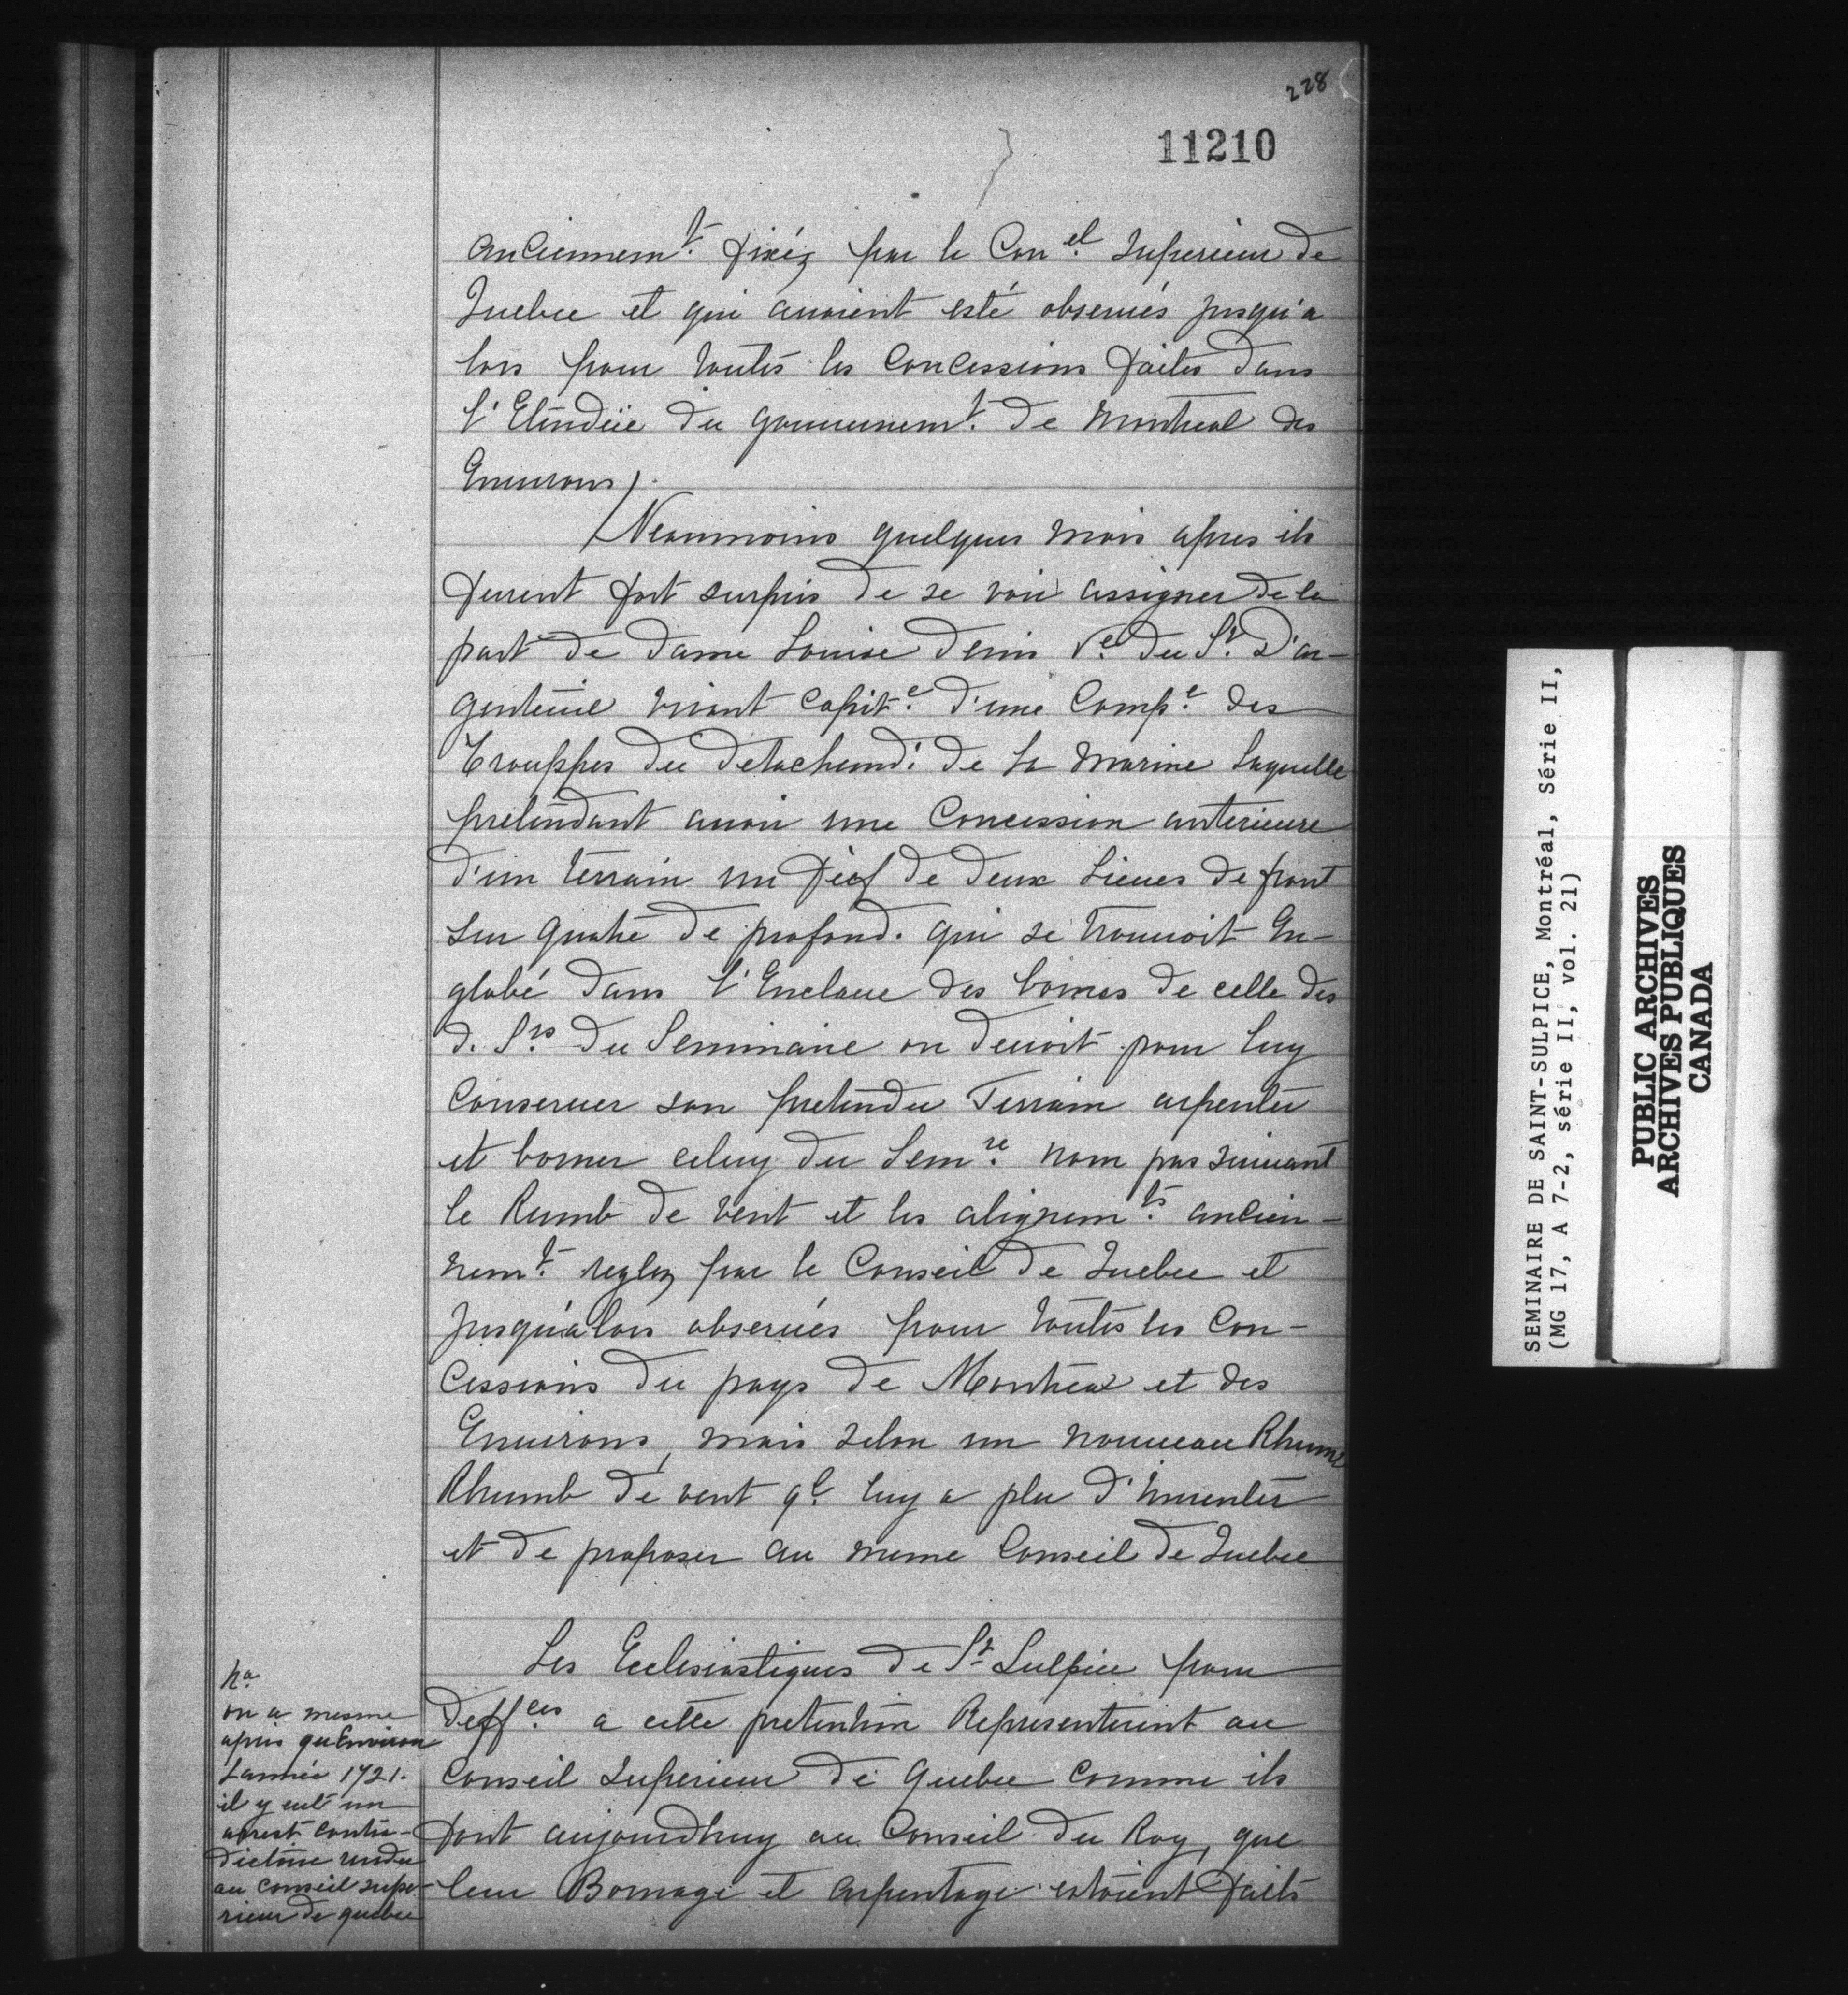 228
11210
anciennem.t fixéz par le Con.el Superieur de
Quebec et qui auoient esté obserués jusqu'a
lors pour toutes les Concessions faites dans
l'Etendüe du gouuernem.t de Montreal des
Enuirons).
Neanmoins quelques mois apres ils
furent fort surpris de se voir assigner de la
part de dame Louise denis V.e du S.r D'ar-
genteüil viuant Capit.e d'une Comp.e des
Trouppes du detachemt. de la Marine Laquelle
pretendant auoir une Concession anterieure
d'un terrain un fief de deux Lieues de front
sur quatre de profond. qui se trouuoit En-
globé dans l'Enclaue des bornes de celle des
d. S.rs du Seminaire on deuoit pour luy
Conseruer son pretendu Terrain arpenter
et borner celuy du Sem.re nom pas suiuant
le Rumb de vent et les alignem.ts ancien-
nem.t reglez par le Conseil de Quebec et
jusqu'alors obserués pour toutes les Con-
cessions du pays de Montreal et des
Enuirons, mais selon un nouueau Rhumb
Rhumb de vent q.l luy a plu d'Inuenter
et de proposer au meme Conseil de Quebec
Les Ecclesiastiques de S.t Sulpice pour
deff.ces a cette pretention Representerent au
Conseil Superieur de Quebec comme ils
font aujourdhuy au Conseil du Roy, que
leur Bornage et arpentage estoient faits
N.a
on a mesme
apris qu'Environ
Lannée 1721.
il y eut un
arrest contra-
dictoire rendu
au conseil supe-
rieur de quebec
SEMINAIRE DE SAINT-SULPICE, Montréal, Série II,
(MG 17, A 7-2, série II, vol. 21)
PUBLIC ARCHIVES
ARCHIVES PUBLIQUES
CANADA